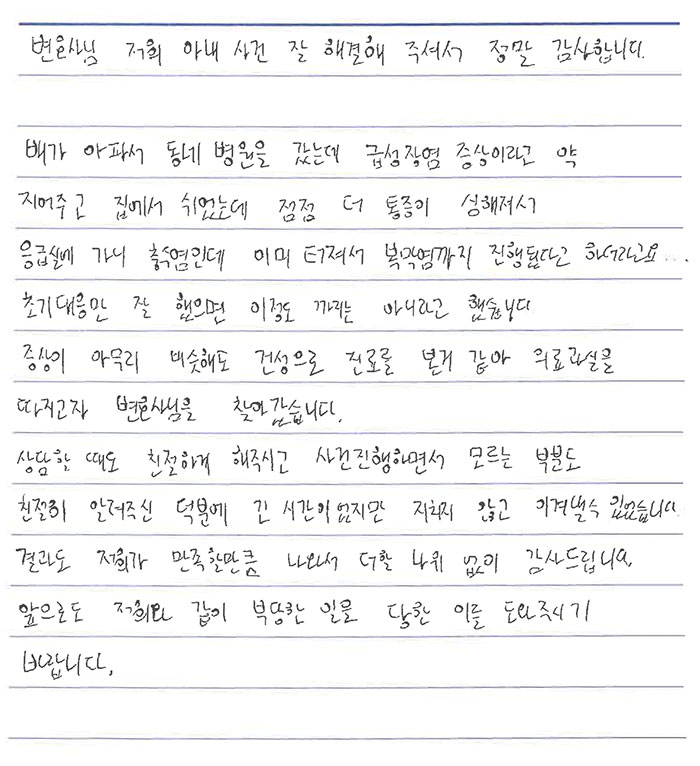 변호사님 저희 아내 사건 잘 해결해 주셔서 정말 감사합니다.
배가 아파서 동네 병원을 갔는데 급성장염 증상이라고 약
지어주고 집에서 쉬었는데 점점 더 통증이 심해져서
응급실에 가니 충수염인데 이미 터져서 복막염까지 진행됬다고 하더라고요...
초기대응만 잘 했으면 이정도 까지는 아니라고 했습니다
증상이 아무리 비슷해도 건성으로 진료를 본거 같아 의료과실을
따지고자 변호사님을 찾아갔습니다.
상담할 때도 친절하게 해주시고 사건진행하면서 모르는 부분도
친절히 알려주신 덕분에 긴 시간이었지만 지치지 않고 이겨낼수 있었습니다.
결과도 저희가 만족할만큼 나와서 더할 나위 없이 감사드립니다.
앞으로도 저희와 같이 부당한 일을 당한 이를 도와주시기
바랍니다.